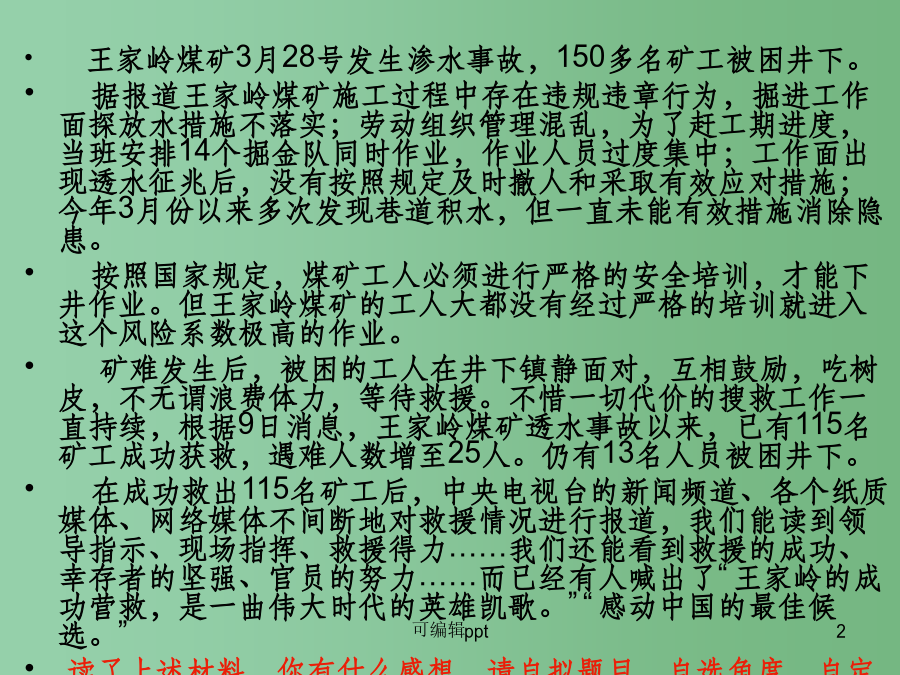 • 王家岭煤矿3月28号发生渗水事故，150多名矿工被困井下。
• 据报道王家岭煤矿施工过程中存在违规违章行为，掘进工作
面探放水措施不落实；劳动组织管理混乱，为了赶工期进度，
当班安排14个掘金队同时作业，作业人员过度集中；工作面出
现透水征兆后，没有按照规定及时撤人和采取有效应对措施；
今年3月份以来多次发现巷道积水，但一直未能有效措施消除隐
患。
• 按照国家规定，煤矿工人必须进行严格的安全培训，才能下
井作业。但王家岭煤矿的工人大都没有经过严格的培训就进入
这个风险系数极高的作业。
• 矿难发生后，被困的工人在井下镇静面对，互相鼓励，吃树
皮，不无谓浪费体力，等待救援。不惜一切代价的搜救工作一
直持续，根据9日消息，王家岭煤矿透水事故以来，已有115名
矿工成功获救，遇难人数增至25人。仍有13名人员被困井下。
• 在成功救出115名矿工后，中央电视台的新闻频道、各个纸质
媒体、网络媒体不间断地对救援情况进行报道，我们能读到领
导指示、现场指挥、救援得力……我们还能看到救援的成功、
幸存者的坚强、官员的努力……而已经有人喊出了“王家岭的成
功营救，是一曲伟大时代的英雄凯歌。”“感动中国的最佳候
选。”
可编辑ppt
2
• 读了上述材料，你有什么感想，请自拟题目，自选角度，自定